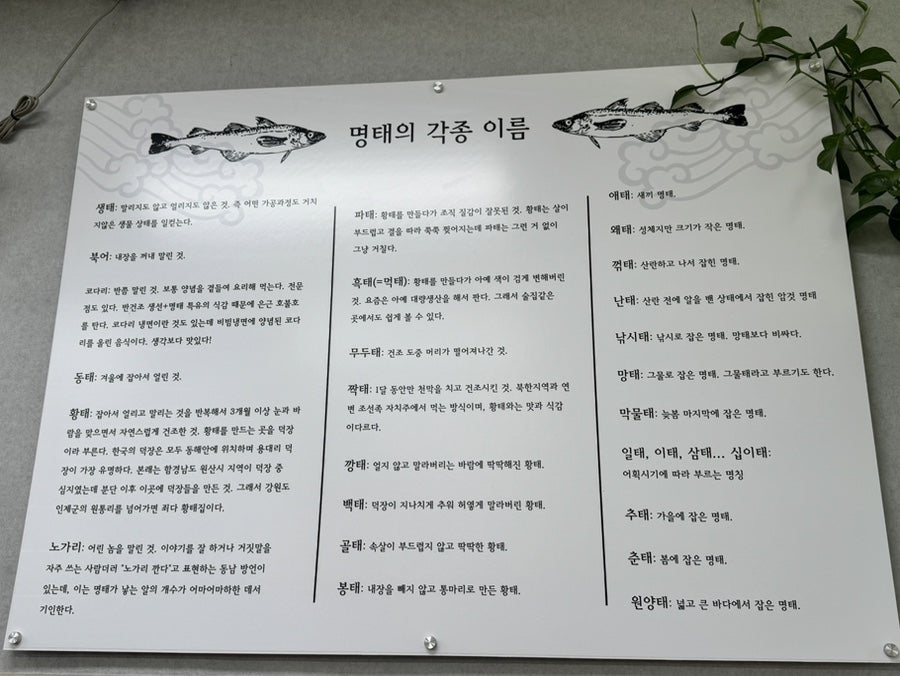 명태의 각종 이름
생태: 말리지도 않고 얼리지도 않은 것. 즉 어떤 가공과정도 거치
지않은 생물 상태를 일컫는다.
북어: 내장을 꺼내 말린 것.
코다리: 반쯤 말린 것. 보통 양념을 곁들여 요리해 먹는다. 전문
점도 있다. 반건조 생선+명태 특유의 식감 때문에 은근 호불호
를 탄다. 코다리 냉면이란 것도 있는데 비빔냉면에 양념된 코다
리를 올린 음식이다. 생각보다 맛있다!
동태: 겨울에 잡아서 얼린 것.
황태: 잡아서 얼리고 말리는 것을 반복해서 3개월 이상 눈과 바
람을 맞으면서 자연스럽게 건조한 것. 황태를 만드는 곳을 덕장
이라 부른다. 한국의 덕장은 모두 동해안에 위치하며 용대리 덕
장이 가장 유명하다. 본래는 함경남도 원산시 지역이 덕장 중
심지였는데 분단 이후 이곳에 덕장들을 만든 것. 그래서 강원도
인제군의 원통리를 넘어가면 죄다 황태집이다.
노가리: 어린 놈을 말린 것. 이야기를 잘 하거나 거짓말을
자주 쓰는 사람더러 "노가리 깐다"고 표현하는 동남 방언이
있는데, 이는 명태가 낳는 알의 개수가 어마어마한 데서
기인한다.
파태: 황태를 만들다가 조직 질감이 잘못된 것. 황태는 살이
부드럽고 결을 따라 쭉쭉 찢어지는데 파태는 그런 거 없이
그냥 거칠다.
흑태(=먹태): 황태를 만들다가 아예 색이 검게 변해버린
것. 요즘은 아예 대량생산을 해서 판다. 그래서 술집같은
곳에서도 쉽게 볼 수 있다.
무두태: 건조 도중 머리가 떨어져나간 것.
짝태: 1달 동안만 천막을 치고 건조시킨 것. 북한지역과 연
변 조선족 자치주에서 먹는 방식이며, 황태와는 맛과 식감
이다르다.
깡태: 얼지 않고 말라버리는 바람에 딱딱해진 황태.
백태: 덕장이 지나치게 추워 허옇게 말라버린 황태.
골태: 속살이 부드럽지 않고 딱딱한 황태.
봉태: 내장을 빼지 않고 통마리로 만든 황태.
애태: 새끼 명태.
왜태: 성체지만 크기가 작은 명태.
꺾태: 산란하고 나서 잡힌 명태.
난태: 산란 전에 알을 밴 상태에서 잡힌 암컷 명태
낚시태: 낚시로 잡은 명태. 망태보다 비싸다.
망태: 그물로 잡은 명태. 그물태라고 부르기도 한다.
막물태: 늦봄 마지막에 잡은 명태.
일태, 이태, 삼태... 십이태:
어획시기에 따라 부르는 명칭
추태: 가을에 잡은 명태.
춘태: 봄에 잡은 명태.
원양태: 넓고 큰 바다에서 잡은 명태.